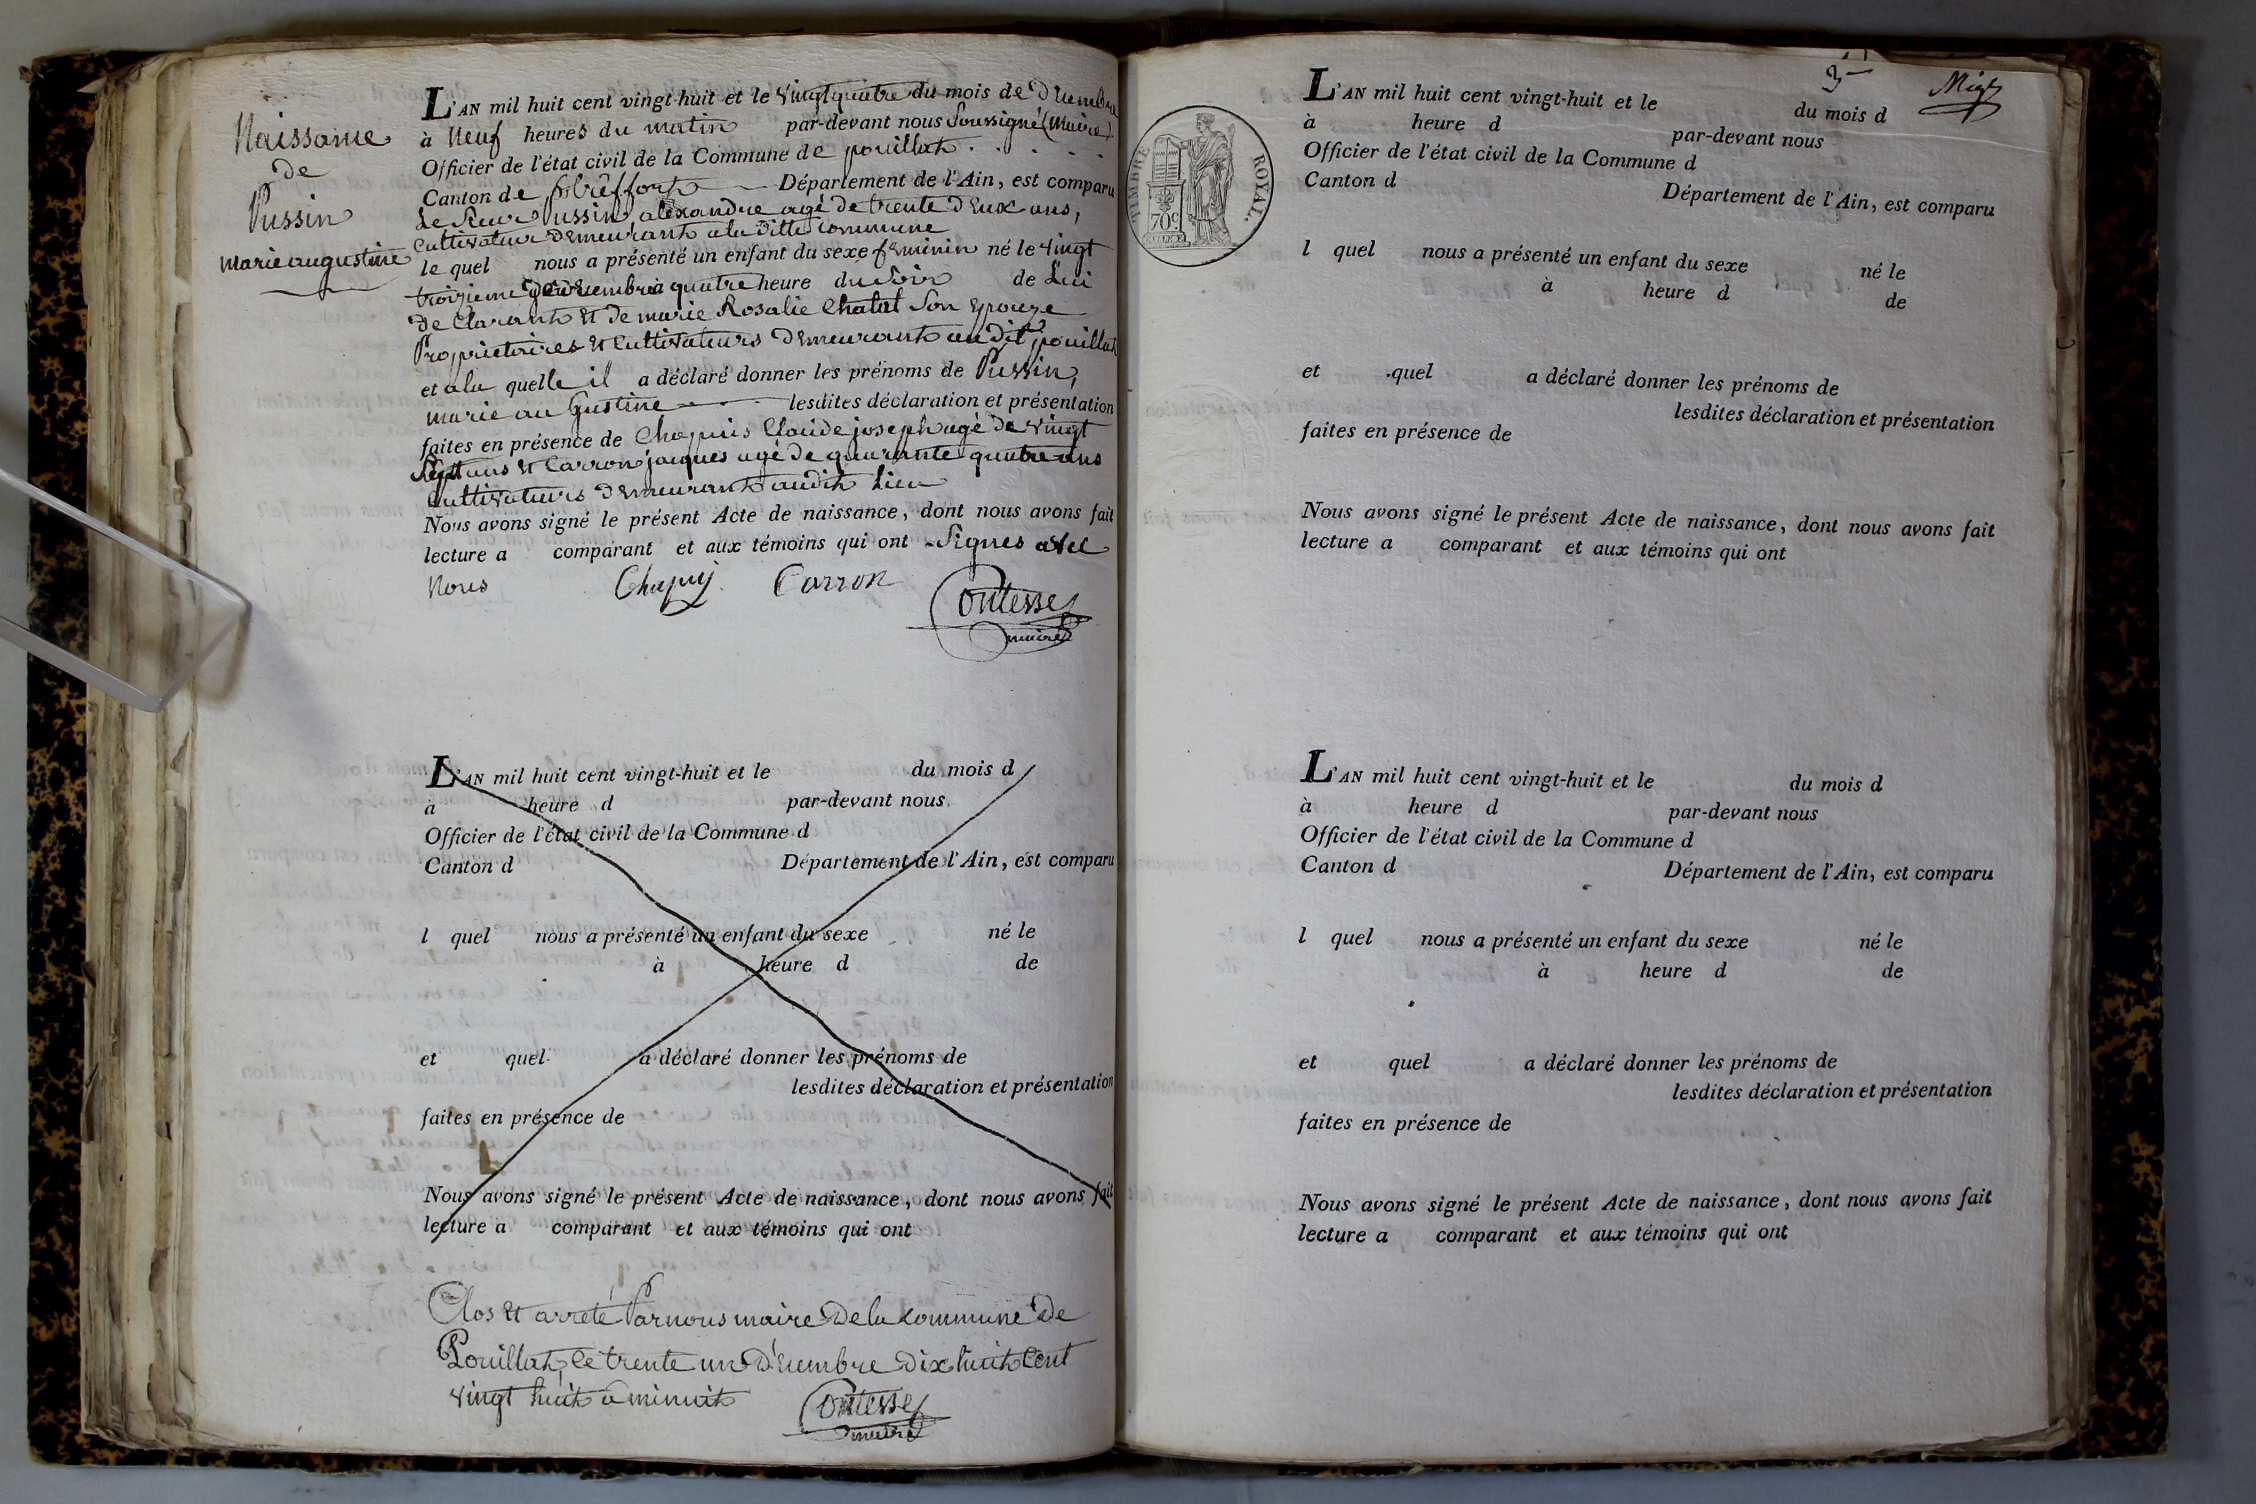 Naissance
de
Pussin
marie augustine
L'AN mil huit cent vingt-huit et le vingt quatre du mois de Décembre
à Neuf heures du matin par-devant nous Soussigné (Maire)
Officier de l'état civil de la Commune de pouillat . . . . .
Canton de Département de l'Ain, est comparu
Le Sieur Pussin alexandre agé de trente deux ans,
Cultivateur Demeurant a la ditte commune
le quel nous a présenté un enfant du sexe feminin né le vingt
troizieme à quatre heure du Soir de Lui
de Clarant et de marie Rosalie Chatal Son Epouze
Proprietaires et Cultivateurs Demeurant au dit pouillat
et a la quelle il a déclaré donner les prénoms de Pussin,
marie au Gustine lesdites déclaration et présentation
faites en présence de Chapuis Claude joseph agé de vingt
Sept ans et Carron jacques agé de quarante quatre ans
Cultivateurs Demeurant audit Lieu
Nous avons signé le présent Acte de naissance, dont nous avons fait
lecture a comparant et aux témoins qui ont Signés avec
Nous Chapuy Carron Contesse
maire
L'AN mil huit cent vingt-huit et le du mois d
à heure d par-devant nous
Officier de l'état civil de la Commune d
Canton d Département de l'Ain, est comparu
l quel nous a présenté un enfant du sexe né le
à heure d de
et quel a déclaré donner les prénoms de
lesdites déclaration et présentation
faites en présence de
Nous avons signé le présent Acte de naissance, dont nous avons fait
lecture a comparant et aux témoins qui ont
Clos et arreté Par nous maire De la Commune De
Pouillat, le trente un Décembre Dix huit Cent
vingt huit a minuit Contesse
maire
TIMBRE ROYAL.
70c
L'AN mil huit cent vingt-huit et le du mois d
à heure d par-devant nous
Officier de l'état civil de la Commune d
Canton d Département de l'Ain, est comparu
l quel nous a présenté un enfant du sexe né le
à heure d de
et quel a déclaré donner les prénoms de
lesdites déclaration et présentation
faites en présence de
Nous avons signé le présent Acte de naissance, dont nous avons fait
lecture a comparant et aux témoins qui ont
L'AN mil huit cent vingt-huit et le du mois d
à heure d par-devant nous
Officier de l'état civil de la Commune d
Canton d Département de l'Ain, est comparu
l quel nous a présenté un enfant du sexe né le
à heure d de
et quel a déclaré donner les prénoms de
lesdites déclaration et présentation
faites en présence de
Nous avons signé le présent Acte de naissance, dont nous avons fait
lecture a comparant et aux témoins qui ont